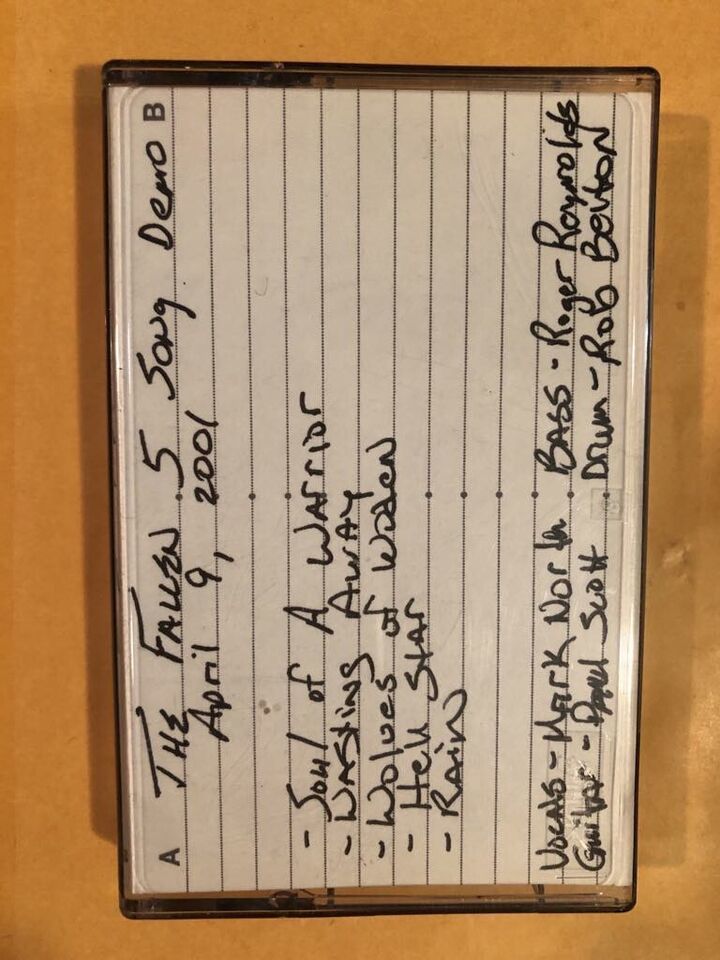 A B
THE FALLEN 5 Song Demo
April 9, 2001
- Soul of A Warrior
- Wasting Away
- Wolves of Woden
- Hell Star
- RAIN
Vocals - Mark North BASS - Roger Raynolds
Guitar - Scott Drum - Rob Benton